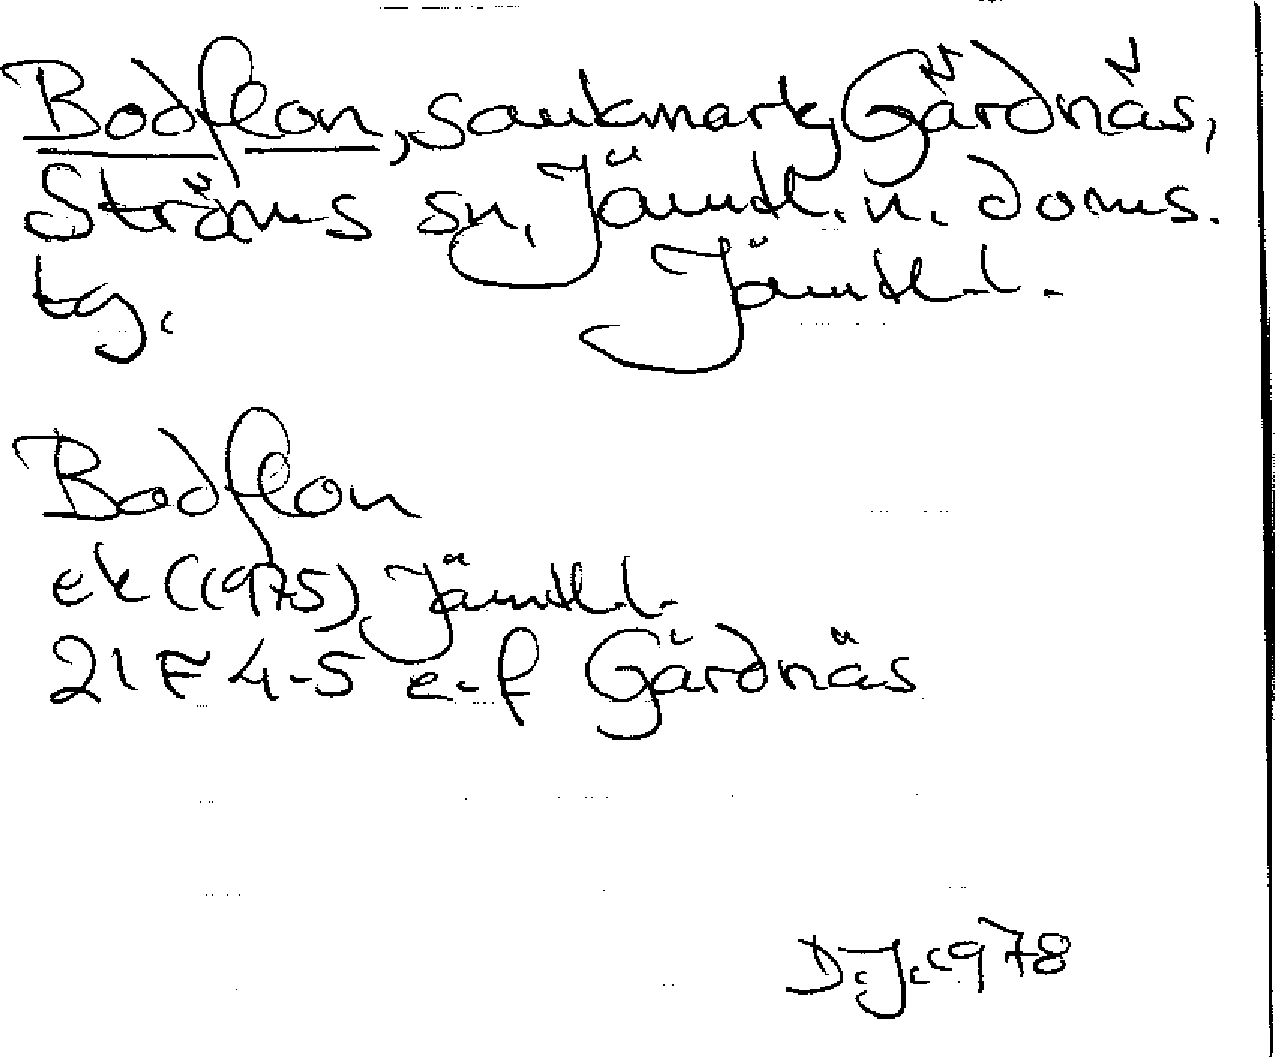 Bodflon, sankmark, Gärdnäs,
Ströms sn, Jämtl. n. doms.
tg. Jämtl. l.
Bodflon
ek (1975) Jämtl. l.
21 F 4-5 e-f Gärdnäs
D.J. 1978